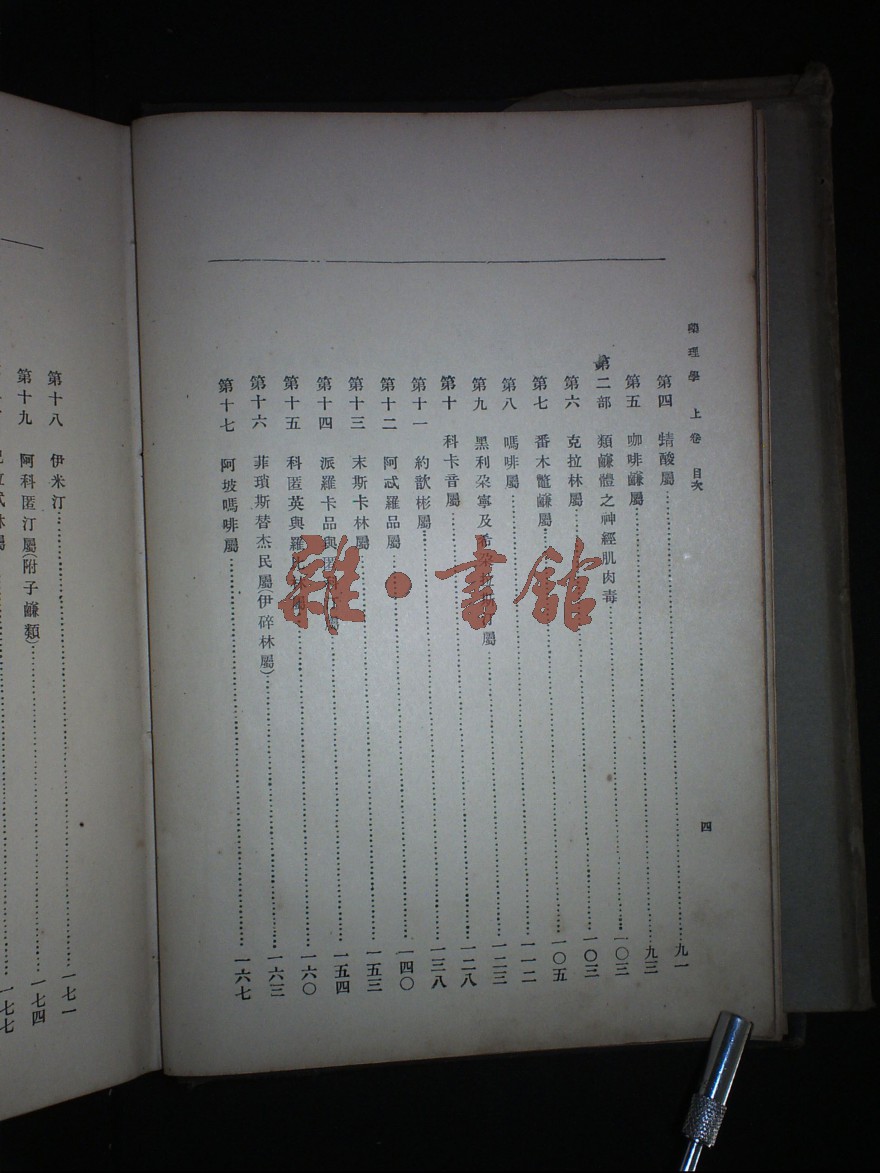 藥理學 上卷 目次
四
第四 蜻酸屬 九一
第五 咖啡鹻屬 九三
第二部 類鹻體之神經肌肉毒 一〇三
第六 克拉林屬 一〇三
第七 番木虌鹻屬 一〇五
第八 嗎啡屬 一一二
第九 黑利朶寧及希朶 屬 一二三
第十 科卡音屬 一二八
第十一 約歆彬屬 一三八
第十二 阿忒羅品屬 一四〇
第十三 末斯卡林屬 一五三
第十四 派羅卡品與匿 屬 一五四
第十五 科匿英與羅 林屬 一六〇
第十六 菲瑣斯替杰民屬(伊碎林屬) 一六三
第十七 阿坡嗎啡屬 一六七
第十八 伊米汀 一七一
第十九 阿科匿汀屬(附子鹻類) 一七四
林屬 一七七
雜·書館